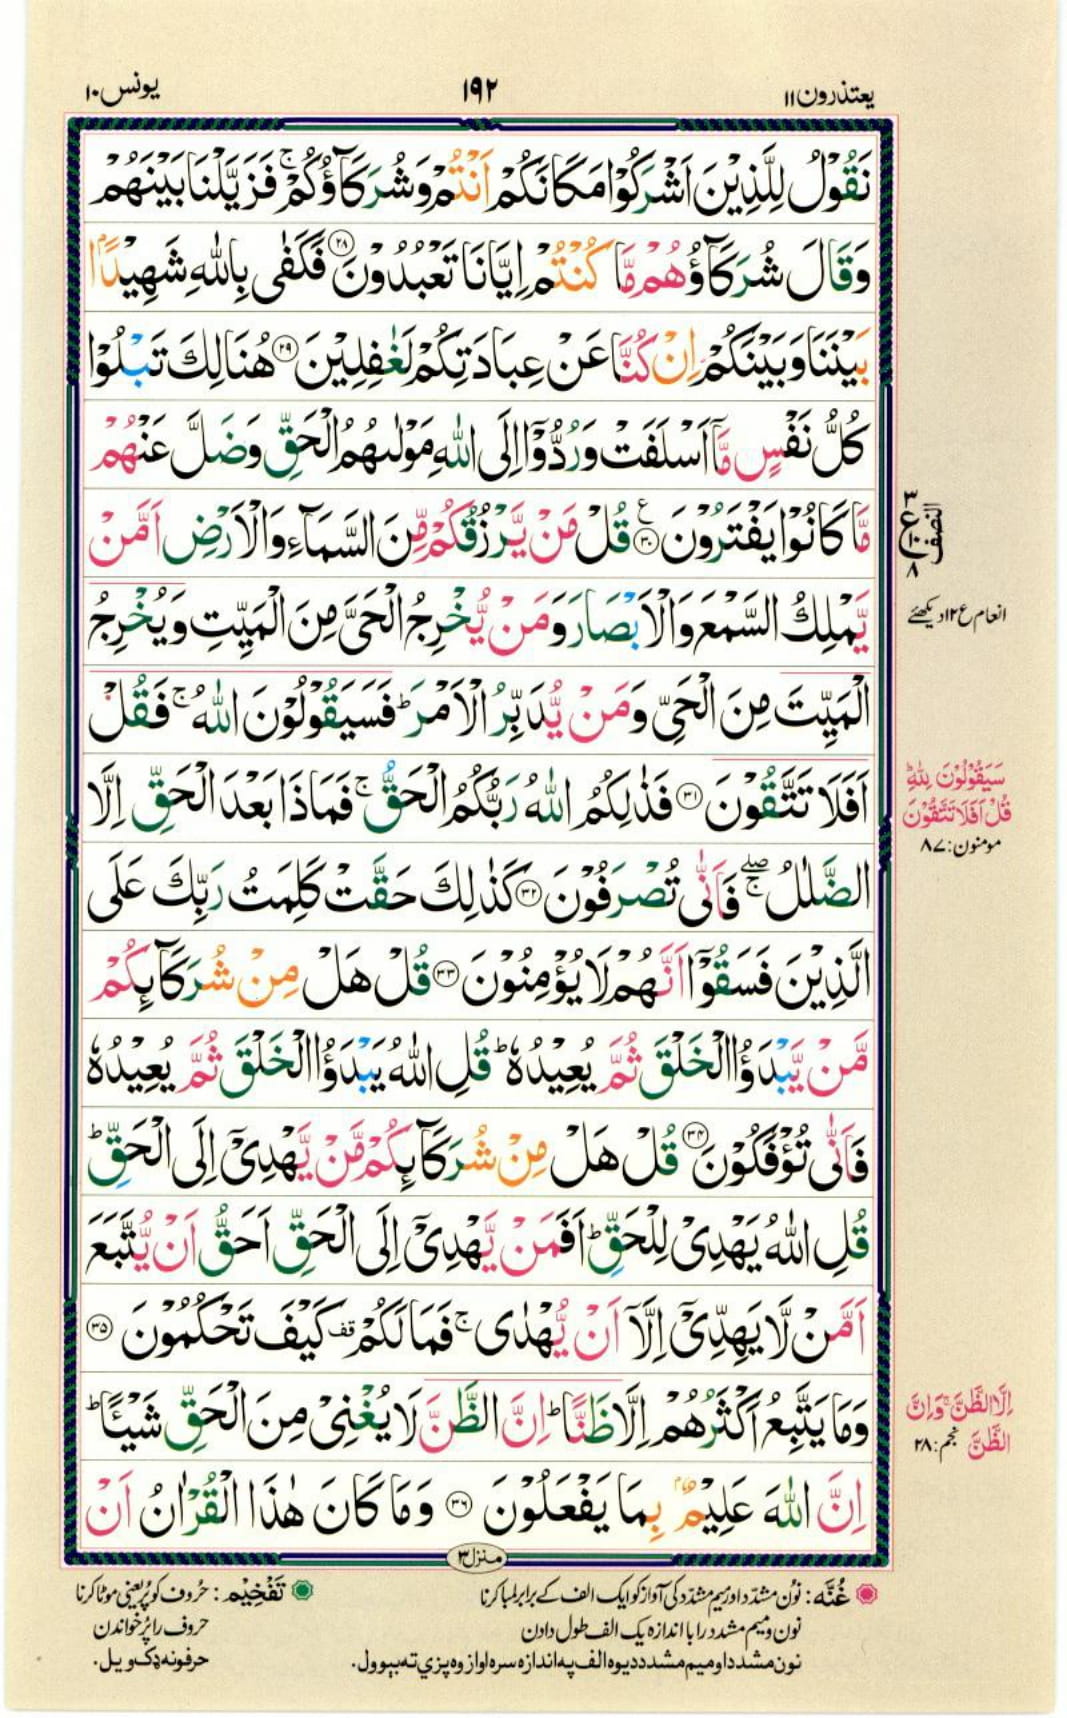 یعتذرون۱۱
۱۹۲
یونس۱۰
نَقُوْلُ لِلَّذِیْنَ اَشْرَكُوْا مَكَانَكُمْ اَنْتُمْ وَشُرَكَآؤُكُمْ ۚ فَزَیَّلْنَا بَیْنَهُمْ
وَقَالَ شُرَكَآؤُهُمْ مَّا كُنْتُمْ اِیَّانَا تَعْبُدُوْنَ ﴿۲۸﴾ فَكَفٰی بِاللّٰهِ شَهِیْدًۢا
بَیْنَنَا وَبَیْنَكُمْ اِنْ كُنَّا عَنْ عِبَادَتِكُمْ لَغٰفِلِیْنَ ﴿۲۹﴾ هُنَالِكَ تَبْلُوْا
كُلُّ نَفْسٍ مَّاۤ اَسْلَفَتْ وَرُدُّوْۤا اِلَی اللّٰهِ مَوْلٰىهُمُ الْحَقِّ وَضَلَّ عَنْهُمْ
مَّا كَانُوْا یَفْتَرُوْنَ ﴿۳۰﴾ ع قُلْ مَنْ یَّرْزُقُكُمْ مِّنَ السَّمَآءِ وَالْاَرْضِ اَمَّنْ
یَّمْلِكُ السَّمْعَ وَالْاَبْصَارَ وَمَنْ یُّخْرِجُ الْحَیَّ مِنَ الْمَیِّتِ وَیُخْرِجُ
الْمَیِّتَ مِنَ الْحَیِّ وَمَنْ یُّدَبِّرُ الْاَمْرَ ؕ فَسَیَقُوْلُوْنَ اللّٰهُ ۚ فَقُلْ
اَفَلَا تَتَّقُوْنَ ﴿۳۱﴾ فَذٰلِكُمُ اللّٰهُ رَبُّكُمُ الْحَقُّ ۚ فَمَاذَا بَعْدَ الْحَقِّ اِلَّا
الضَّلٰلُ ۖۚ فَاَنّٰی تُصْرَفُوْنَ ﴿۳۲﴾ كَذٰلِكَ حَقَّتْ كَلِمَتُ رَبِّكَ عَلَی
الَّذِیْنَ فَسَقُوْۤا اَنَّهُمْ لَا یُؤْمِنُوْنَ ﴿۳۳﴾ قُلْ هَلْ مِنْ شُرَكَآىِٕكُمْ
مَّنْ یَّبْدَؤُا الْخَلْقَ ثُمَّ یُعِیْدُهٗ ؕ قُلِ اللّٰهُ یَبْدَؤُا الْخَلْقَ ثُمَّ یُعِیْدُهٗ
فَاَنّٰی تُؤْفَكُوْنَ ﴿۳۴﴾ قُلْ هَلْ مِنْ شُرَكَآىِٕكُمْ مَّنْ یَّهْدِیْۤ اِلَی الْحَقِّ ؕ
قُلِ اللّٰهُ یَهْدِیْ لِلْحَقِّ ؕ اَفَمَنْ یَّهْدِیْۤ اِلَی الْحَقِّ اَحَقُّ اَنْ یُّتَّبَعَ
اَمَّنْ لَّا یَهِدِّیْۤ اِلَّاۤ اَنْ یُّهْدٰی ۚ فَمَا لَكُمْ قف كَیْفَ تَحْكُمُوْنَ ﴿۳۵﴾
وَمَا یَتَّبِعُ اَكْثَرُهُمْ اِلَّا ظَنًّا ؕ اِنَّ الظَّنَّ لَا یُغْنِیْ مِنَ الْحَقِّ شَیْـًٔا ؕ
اِنَّ اللّٰهَ عَلِیْمٌۢ بِمَا یَفْعَلُوْنَ ﴿۳۶﴾ وَمَا كَانَ هٰذَا الْقُرْاٰنُ اَنْ
النصف
۳
ع
۱۰
۸
انعام ع۱۲ دیکھئے
سَیَقُوْلُوْنَ لِلّٰهِ ؕ
قُلْ اَفَلَا تَتَّقُوْنَ
مومنون:۸۷
اِلَّا الظَّنَّ ۚ وَاِنَّ
الظَّنَّ نجم:۲۸
منزل۳
غُنَّه: نُون مشدّد اور میم مشدّد کی آواز کو ایک الف کے برابر لمبا کرنا
نون و میم مشدد را با اندازہ یک الف طول دادن
نون مشدد او میم مشدد دیوه الف په اندازه سره اواز وه پزي ته بېوول.
تَفْخِیْم: حُروف کو پُر یعنی موٹا کرنا
حروف را پُر خواندن
حرفونه ډک ویل.